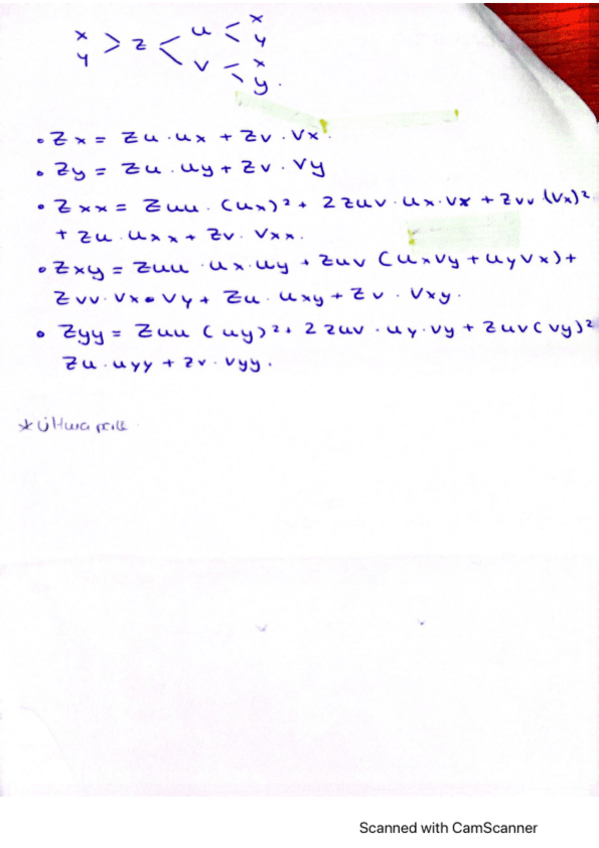 x
y > z < u < x
y
v < x
y.
• Zx = Zu · ux + Zv · Vx.
• Zy = Zu · uy + Zv · Vy
• Zxx = Zuu · (ux)² + 2 Zuv · ux · Vx + Zvv (Vx)²
+ Zu · uxx + Zv · Vxx.
• Zxy = Zuu · ux · uy + Zuv (uxVy + uyVx) +
Zvv · Vx • Vy + Zu · uxy + Zv · Vxy.
• Zyy = Zuu (uy)² + 2 Zuv · uy · Vy + Zuv (Vy)²
Zu · uyy + Zv · Vyy.
Scanned with CamScanner